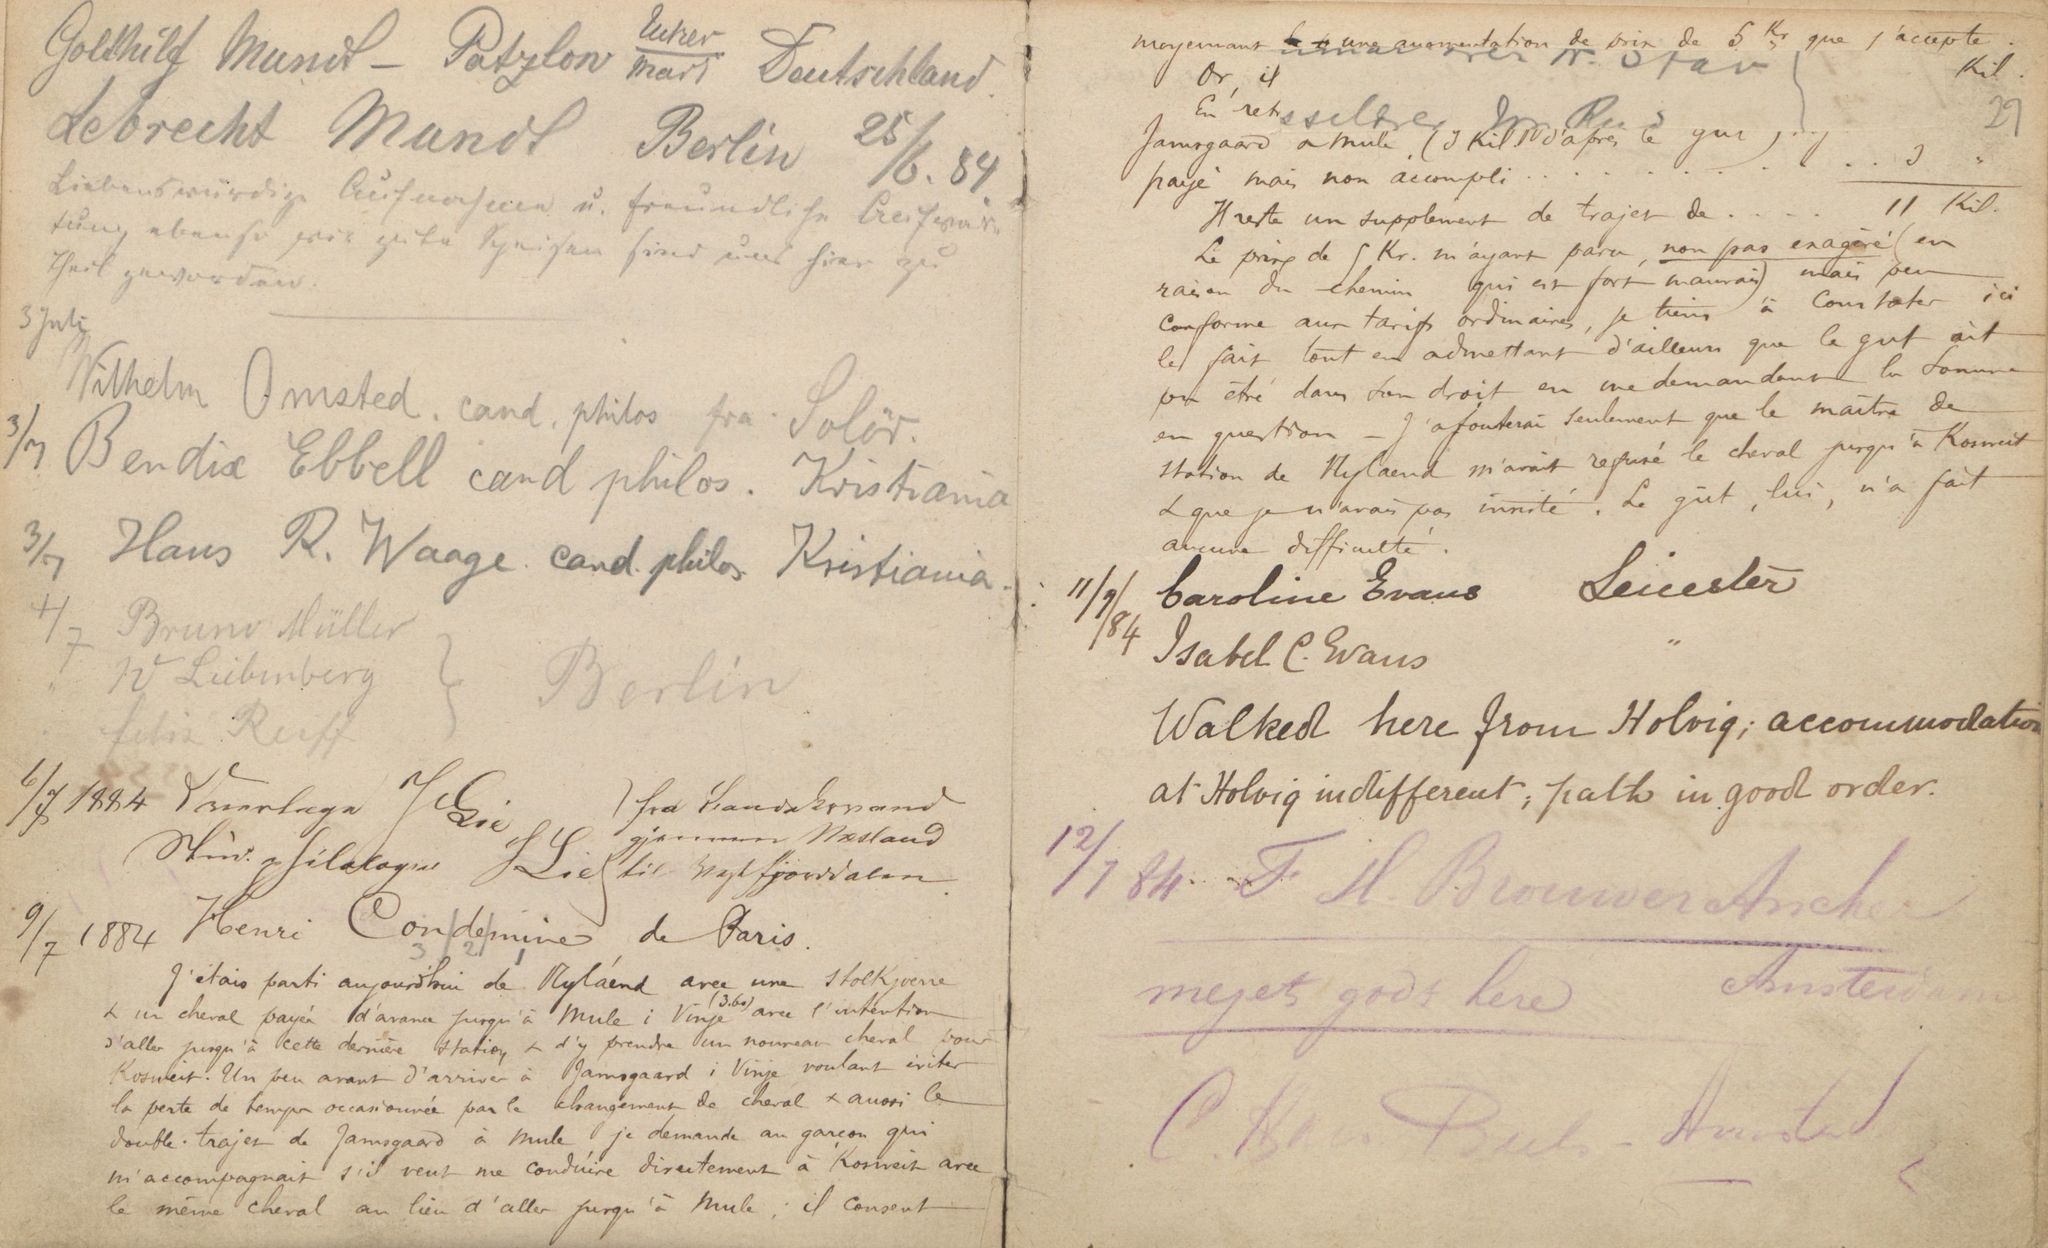 Gotthilf Mundt – Potzlow Ucker Mark Deutschland.
Lebrecht Mundt Berlin 25/6. 84
Liebenswürdige Aufnahme u. freundliche Aufwar-
tung ebenso wie gute Speisen sind uns hier zu
Theil geworden.
3 Juli
Wilhelm Omsted. cand. philos fra Solör.
3/7 Bendix Ebbell cand philos. Kristiania
3/7 Hans R. Waage cand. philos Kristiania.
4/7 Bruno Müller
" W Liebenberg Berlin
" Felix Reiff
6/7 1884 J Lie fra
Stud. philologiæ S Lie til Vestfjorddalen
gjennem
9/7 1884 Henri Condemine de Paris.
3 2 1
J'étais parti aujourd'hui de Nylaend avec une stolkjoerre
& un cheval payés d'avance jusqu'à Mule i Vinje (3.60) avec l'intention
d'aller jusqu'à cette dernière station & d'y prendre un nouveau cheval pour
Kosweit. Un peu avant d'arriver à Jamsgaard i Vinje voulant éviter
la perte de temps occasionnée par le changement de cheval & aussi le
double trajet de Jamsgaard à Mule je demande au garçon qui
m'accompagnait s'il veut me conduire directement à Kosweit avec
le même cheval au lieu d'aller jusqu'à Mule ; il consent
moyennant une augmentation de prix de 5 Kr que j'accepte.
Or, il Kil.
29
En
Jamsgaard à Mule (3 Kil d'après le gut) . . . 3 "
payé mais non accompli . . . . . . . .
Il reste un supplément de trajet de . . . . 11 Kil.
Le prix de 5 Kr. m'ayant paru, non pas exagéré (en
raison du chemin qui est fort mauvais) mais peu
conforme aux tarifs ordinaires, je tiens à constater ici
le fait tout en admettant d'ailleurs que le gut ait
pu être dans son droit en me demandant la somme
en question – J'ajouterai seulement que le maître de
station de Nylaend m'avait refusé le cheval jusqu'à Kosweit
& que je n'avais pas insisté. Le gut, lui, n'a fait
aucune difficulté.
11/7/84 Caroline Evans Leicester
Isabel C. Evans "
Walked here from Holvig; accommodation
at Holvig indifferent; path in good order.
12/7 84. F. H. Brouwer Ancher
mejet godt here Amsterdam
C.